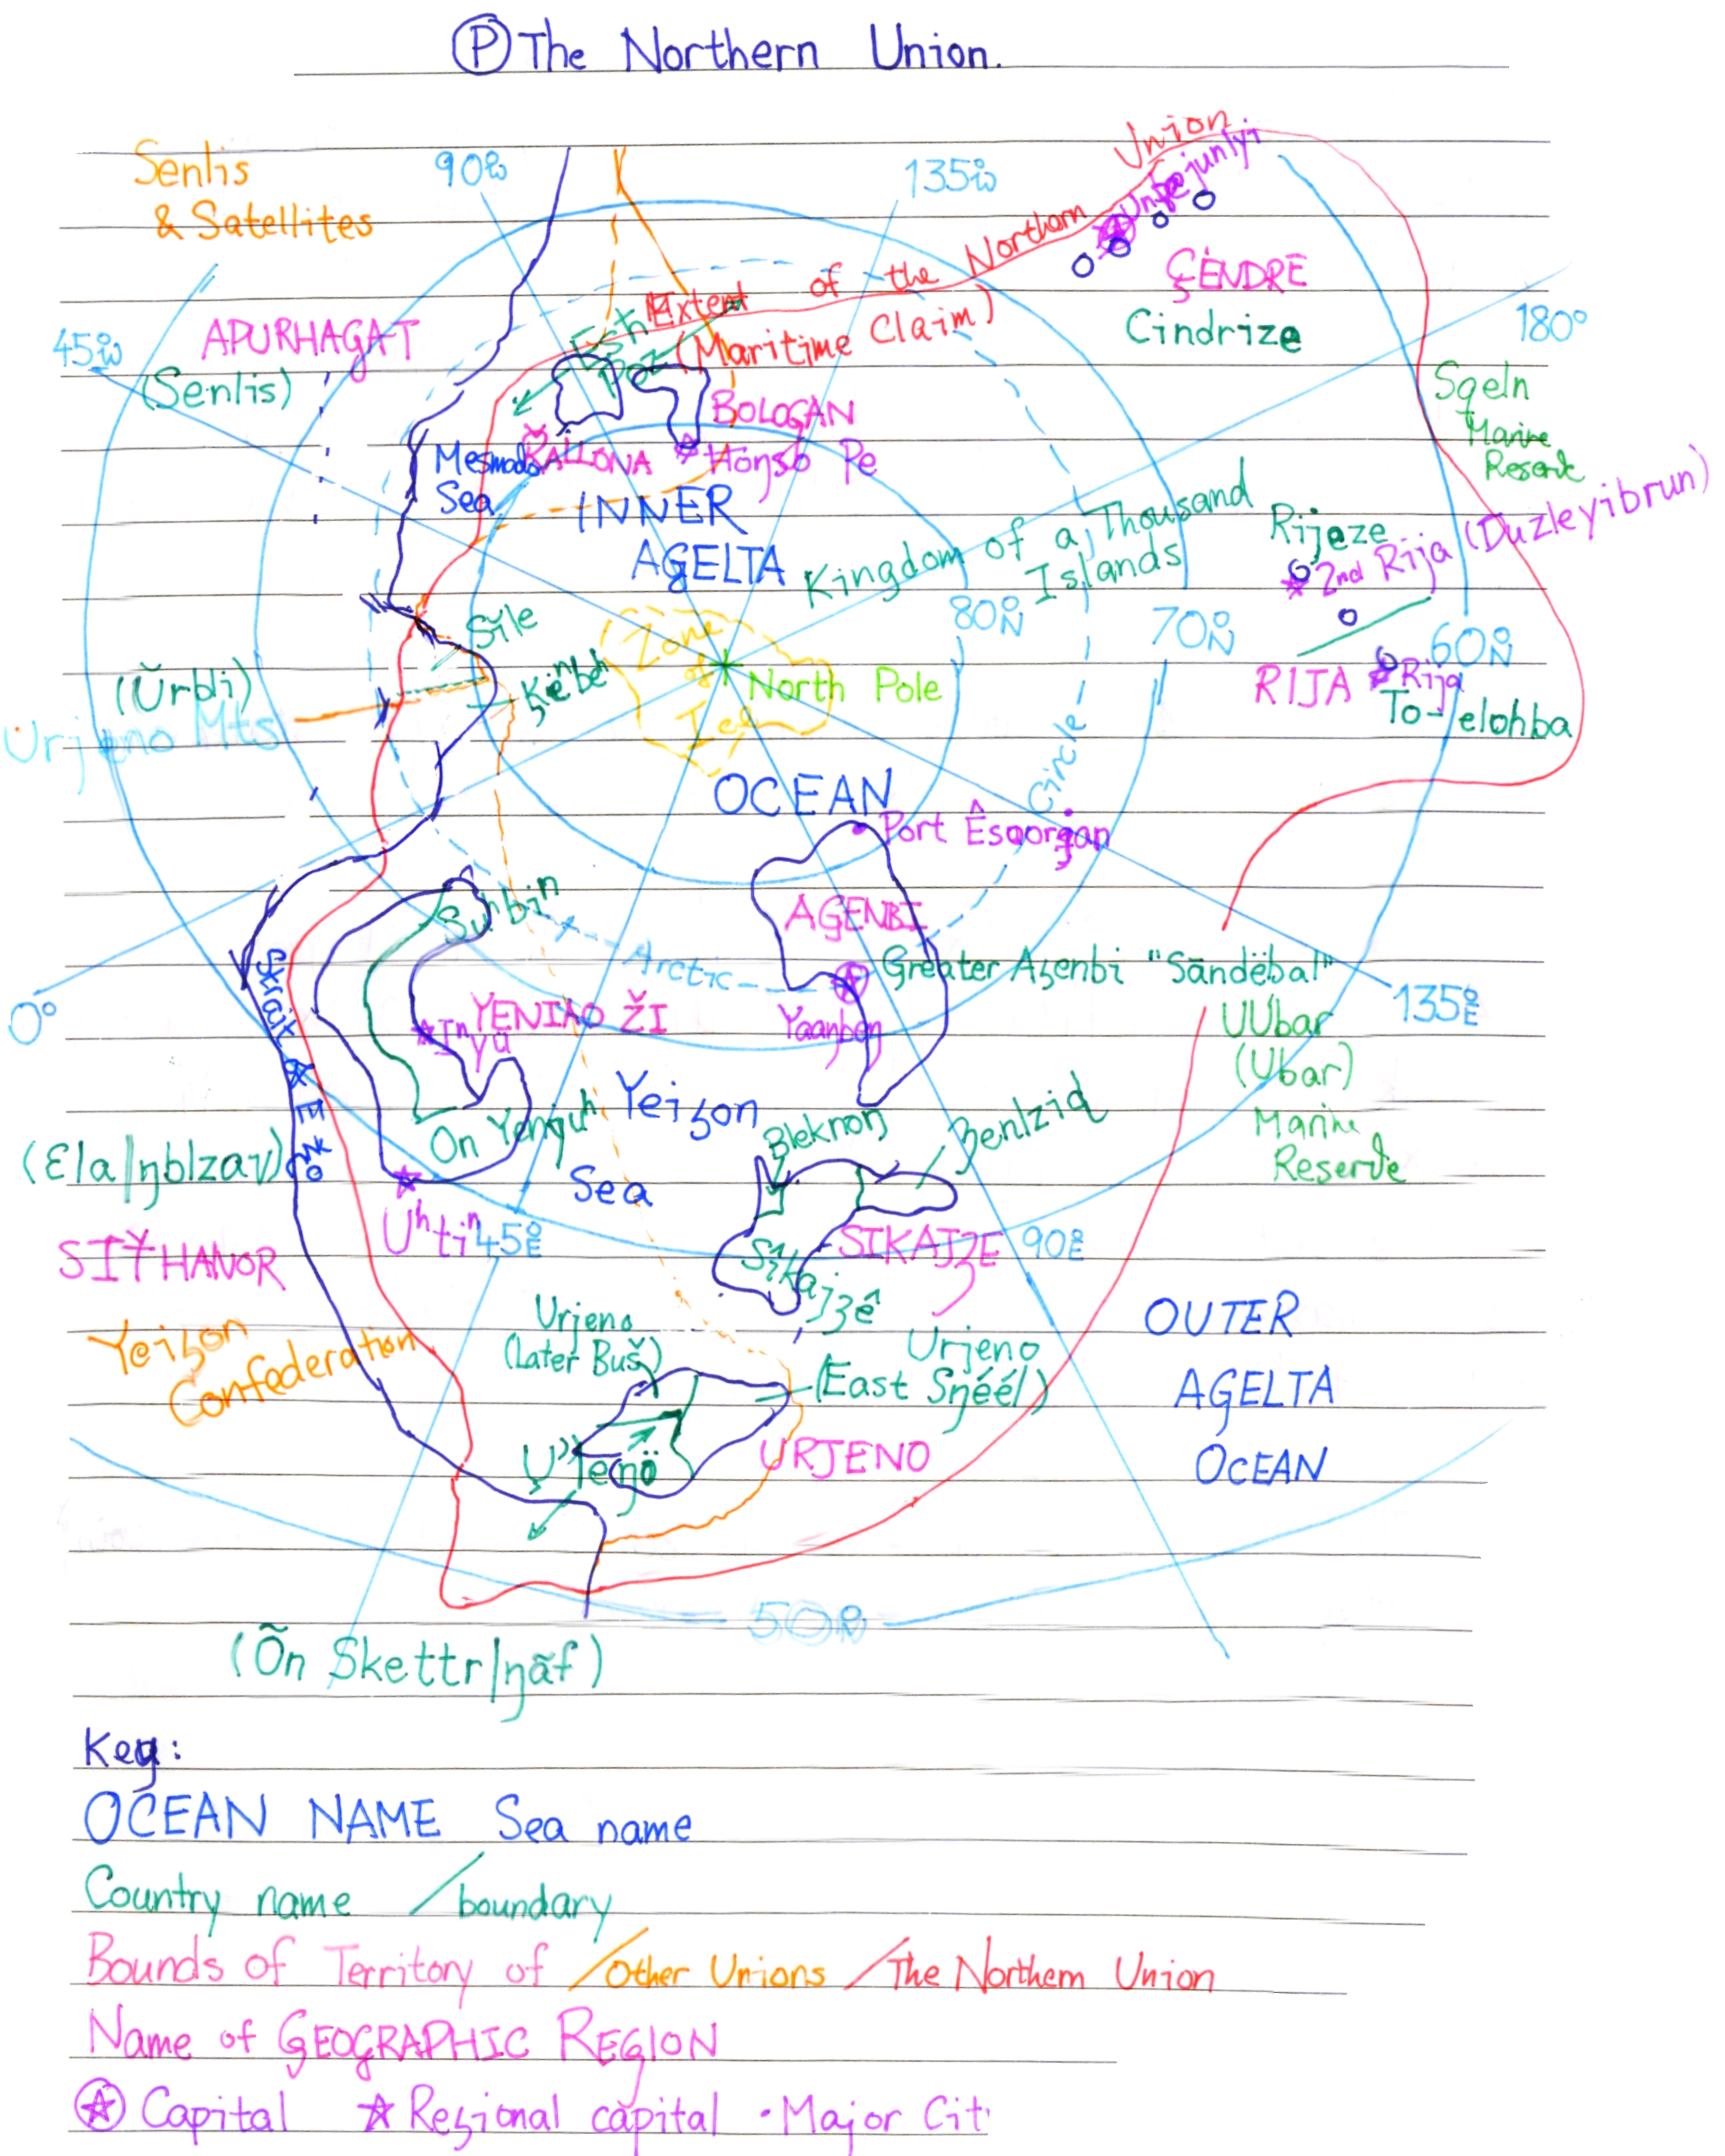 Ⓟ The Northern Union.
Senlis
& Satellites
90°W
135°W
Union
Extent of the Northern
(Maritime Claim)
ÇENDRE
Cindrize
180°
45°W
APURHAGAT
(Senlis)
Sqeln
Marine
Reserve
BOLOGAN
ŽALLONA
Honso Pe
Sea
INNER
AGELTA
Kingdom of a Thousand
Islands
Rijeze
2nd Rija (Duzleyibrun)
80°N
70°N
60°N
Sile
Zone
of
Ice
North Pole
(Ŭrbli)
Urjeno Mts
RIJA
Rija
To-elohba
OCEAN
Circle
Port Êsqorgan
Suʰbiⁿ
AGENBI
Arctic
Greater Agenbi "Sāndëbal"
Yaanben
0°
135°E
Strait
YENIAO ŽI
Iⁿyü
UUbar
(Ubar)
Marine
Reserve
Yeizon
Sea
On Yeŋuʰ
Bleknon
Benlziq
(Ɛla|ŋblzav)
Uʰtiⁿ
45°E
90°E
SIKAJZE
Sikajzê
SIŤHANOR
Yeizon
Confederation
Urjeno
(Later Buš)
Urjeno
(East Sŋéél)
URJENO
OUTER
AGELTA
OCEAN
50°N
(Õn Skettr|ŋãf)
Key:
OCEAN NAME Sea name
Country name / boundary
Bounds of Territory of / Other Unions / The Northern Union
Name of GEOGRAPHIC REGION
Capital ★ Regional capital · Major Cit